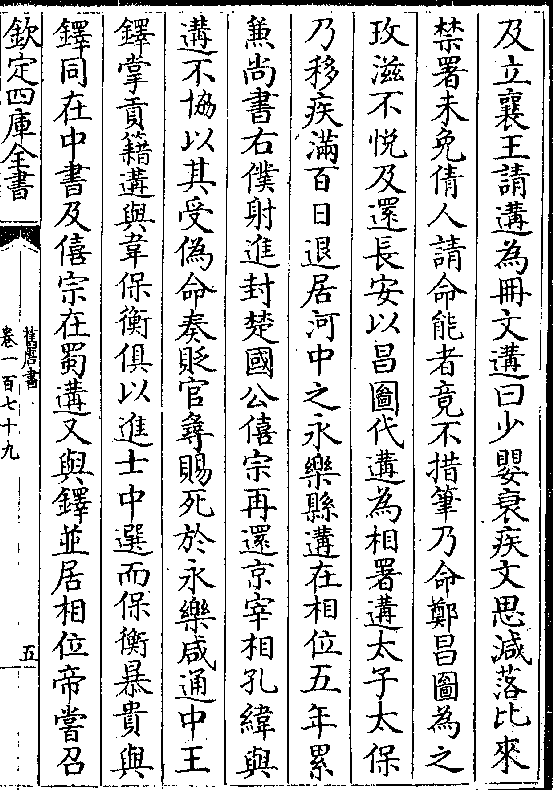 及立襄王請遘為冊文遘曰少嬰衰疾文思減落比來
禁署未免倩人請命能者竟不措筆乃命鄭昌圖為之
玫滋不悅及還長安以昌圖代遘為相署遘太子太保
乃移疾滿百日退居河中之永樂縣遘在相位五年累
兼尚書右僕射進封楚國公僖宗再還京宰相孔緯與
遘不協以其受偽命奏貶官尋賜死於永樂咸通中王
鐸掌貢籍遘與韋保衡俱以進士中選而保衡暴貴與
鐸同在中書及僖宗在蜀遘又與鐸並居相位帝嘗召
欽定四庫全書
舊唐書
卷一百七十九
五